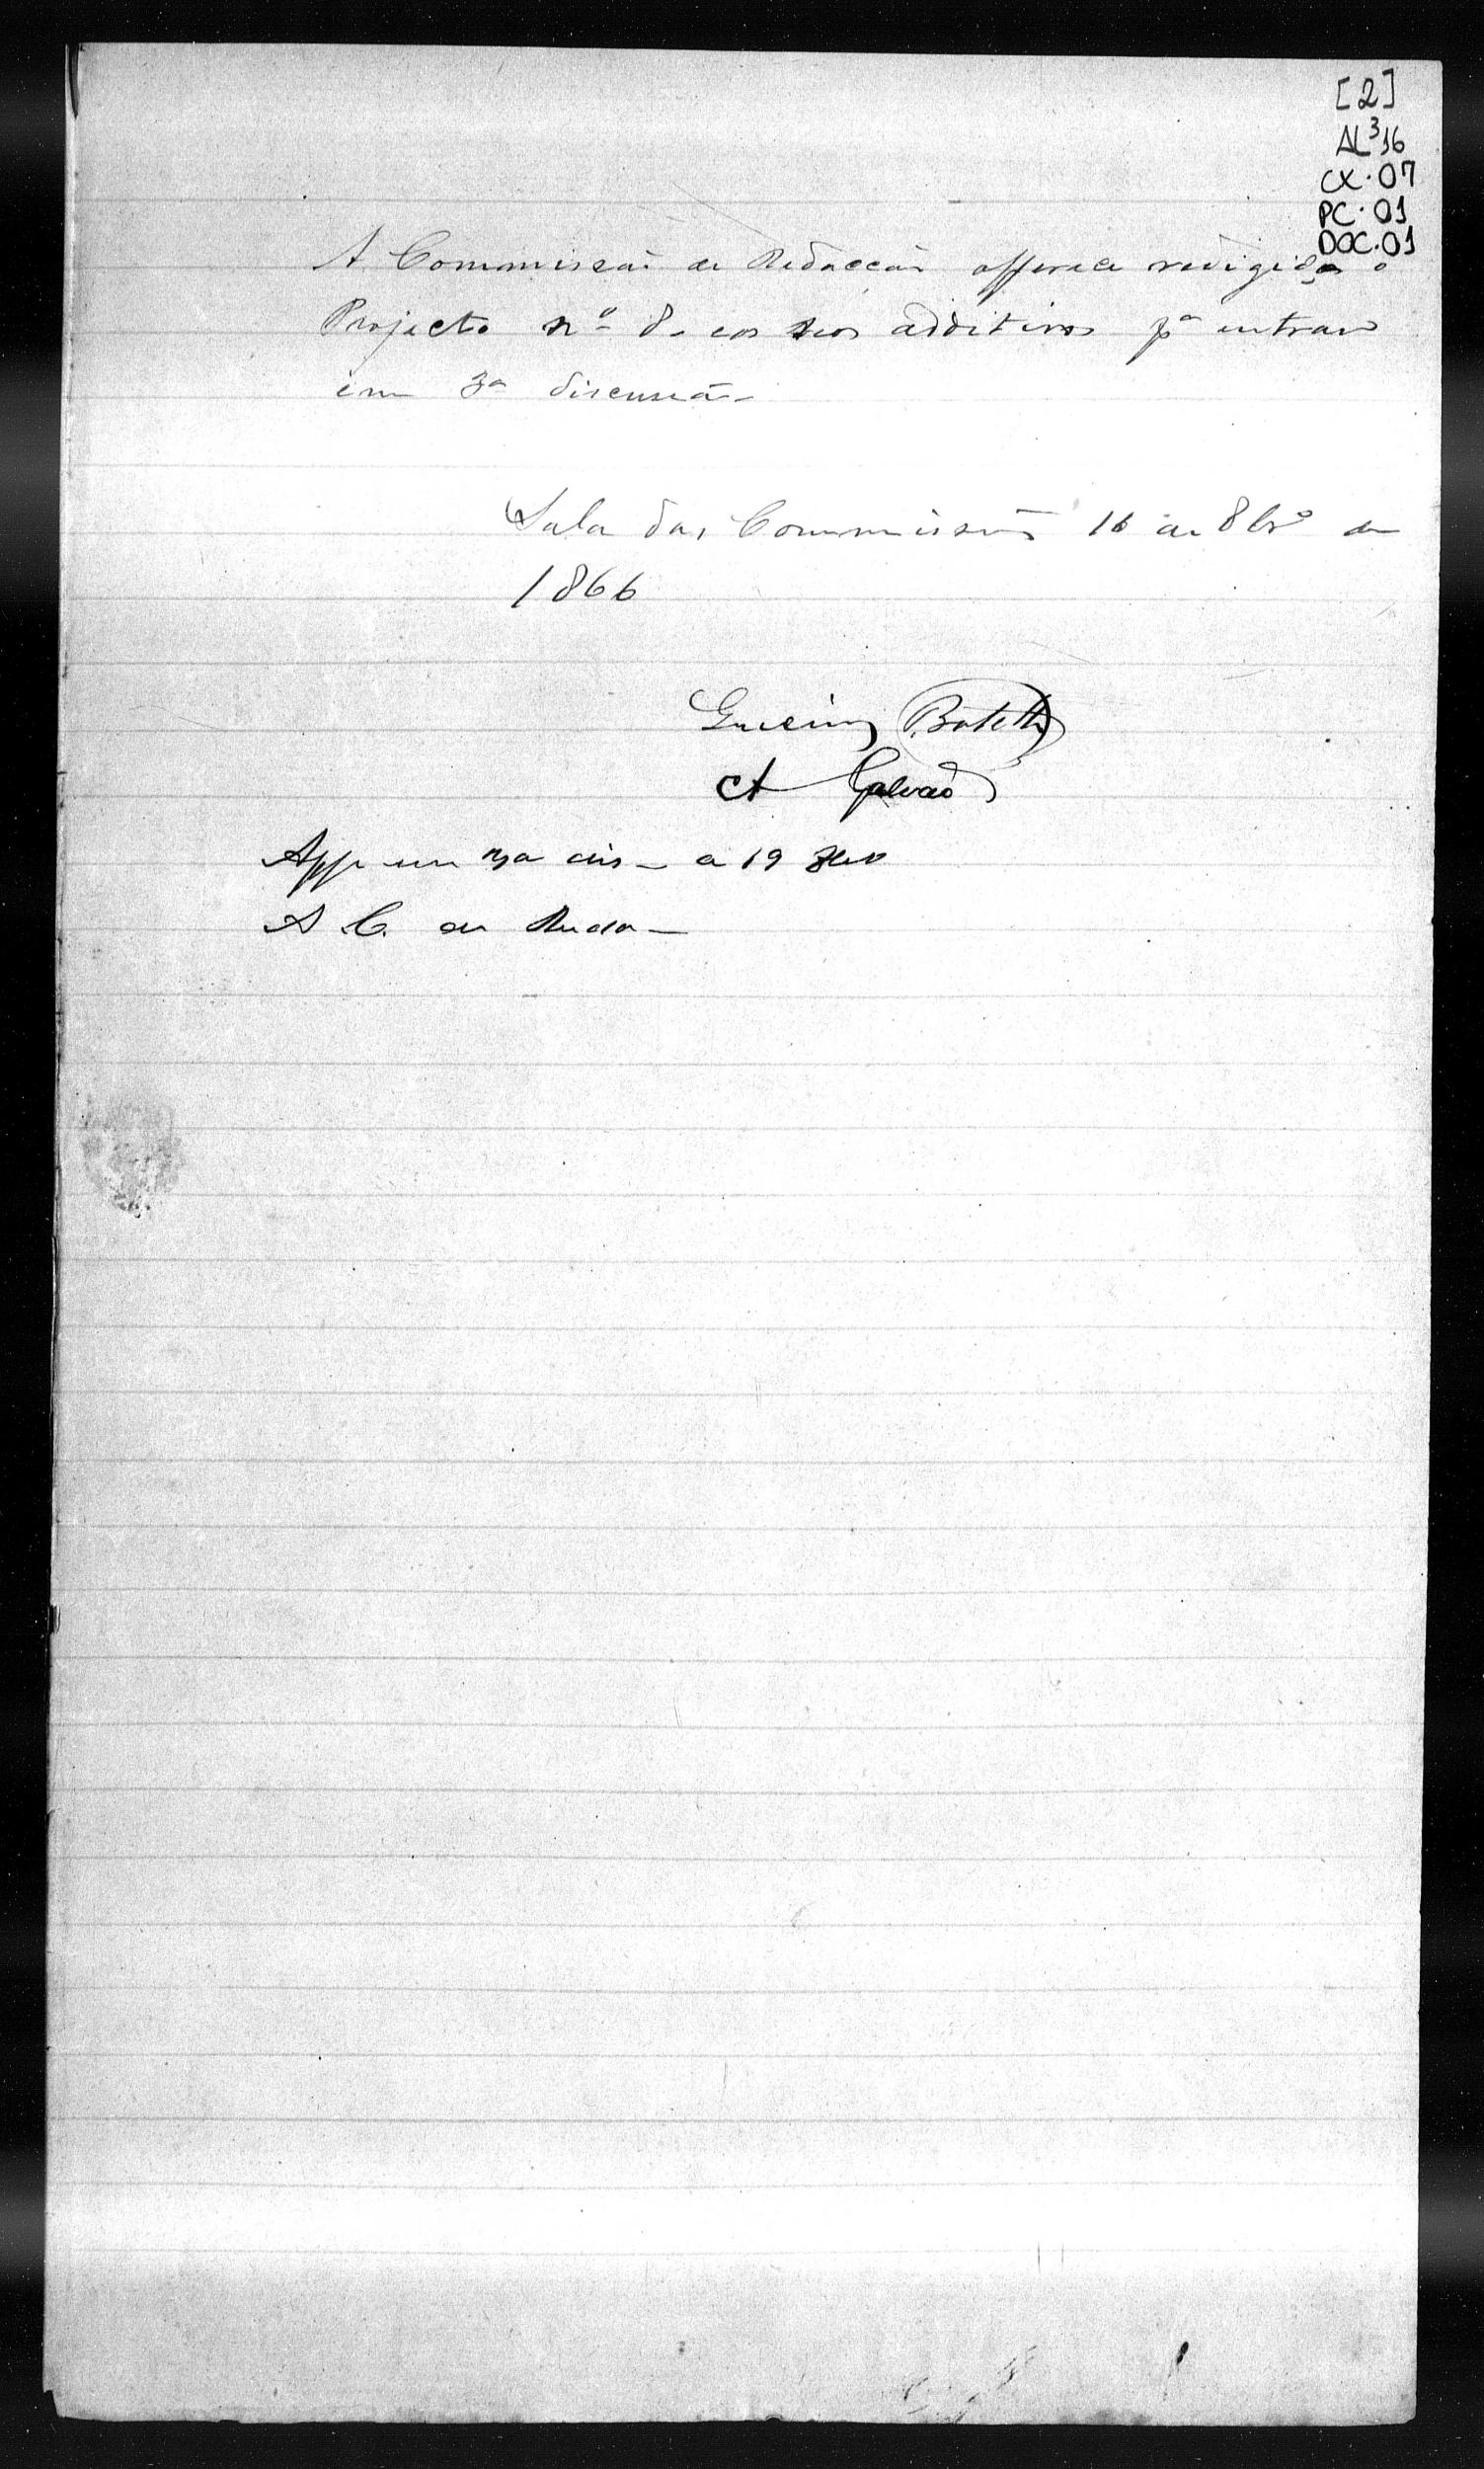 [2]
AL316
CX.07
PC.01
DOC.01
A Commissão de Redacção offerece redigido o
Projecto nº 8 com seos additivos pª entrar
em 3ª discussão
Sala das Commissões 16 de 8brº de
1866
Botelho
A Galvão
App em 3a dis - a 19
A C. de Reda -